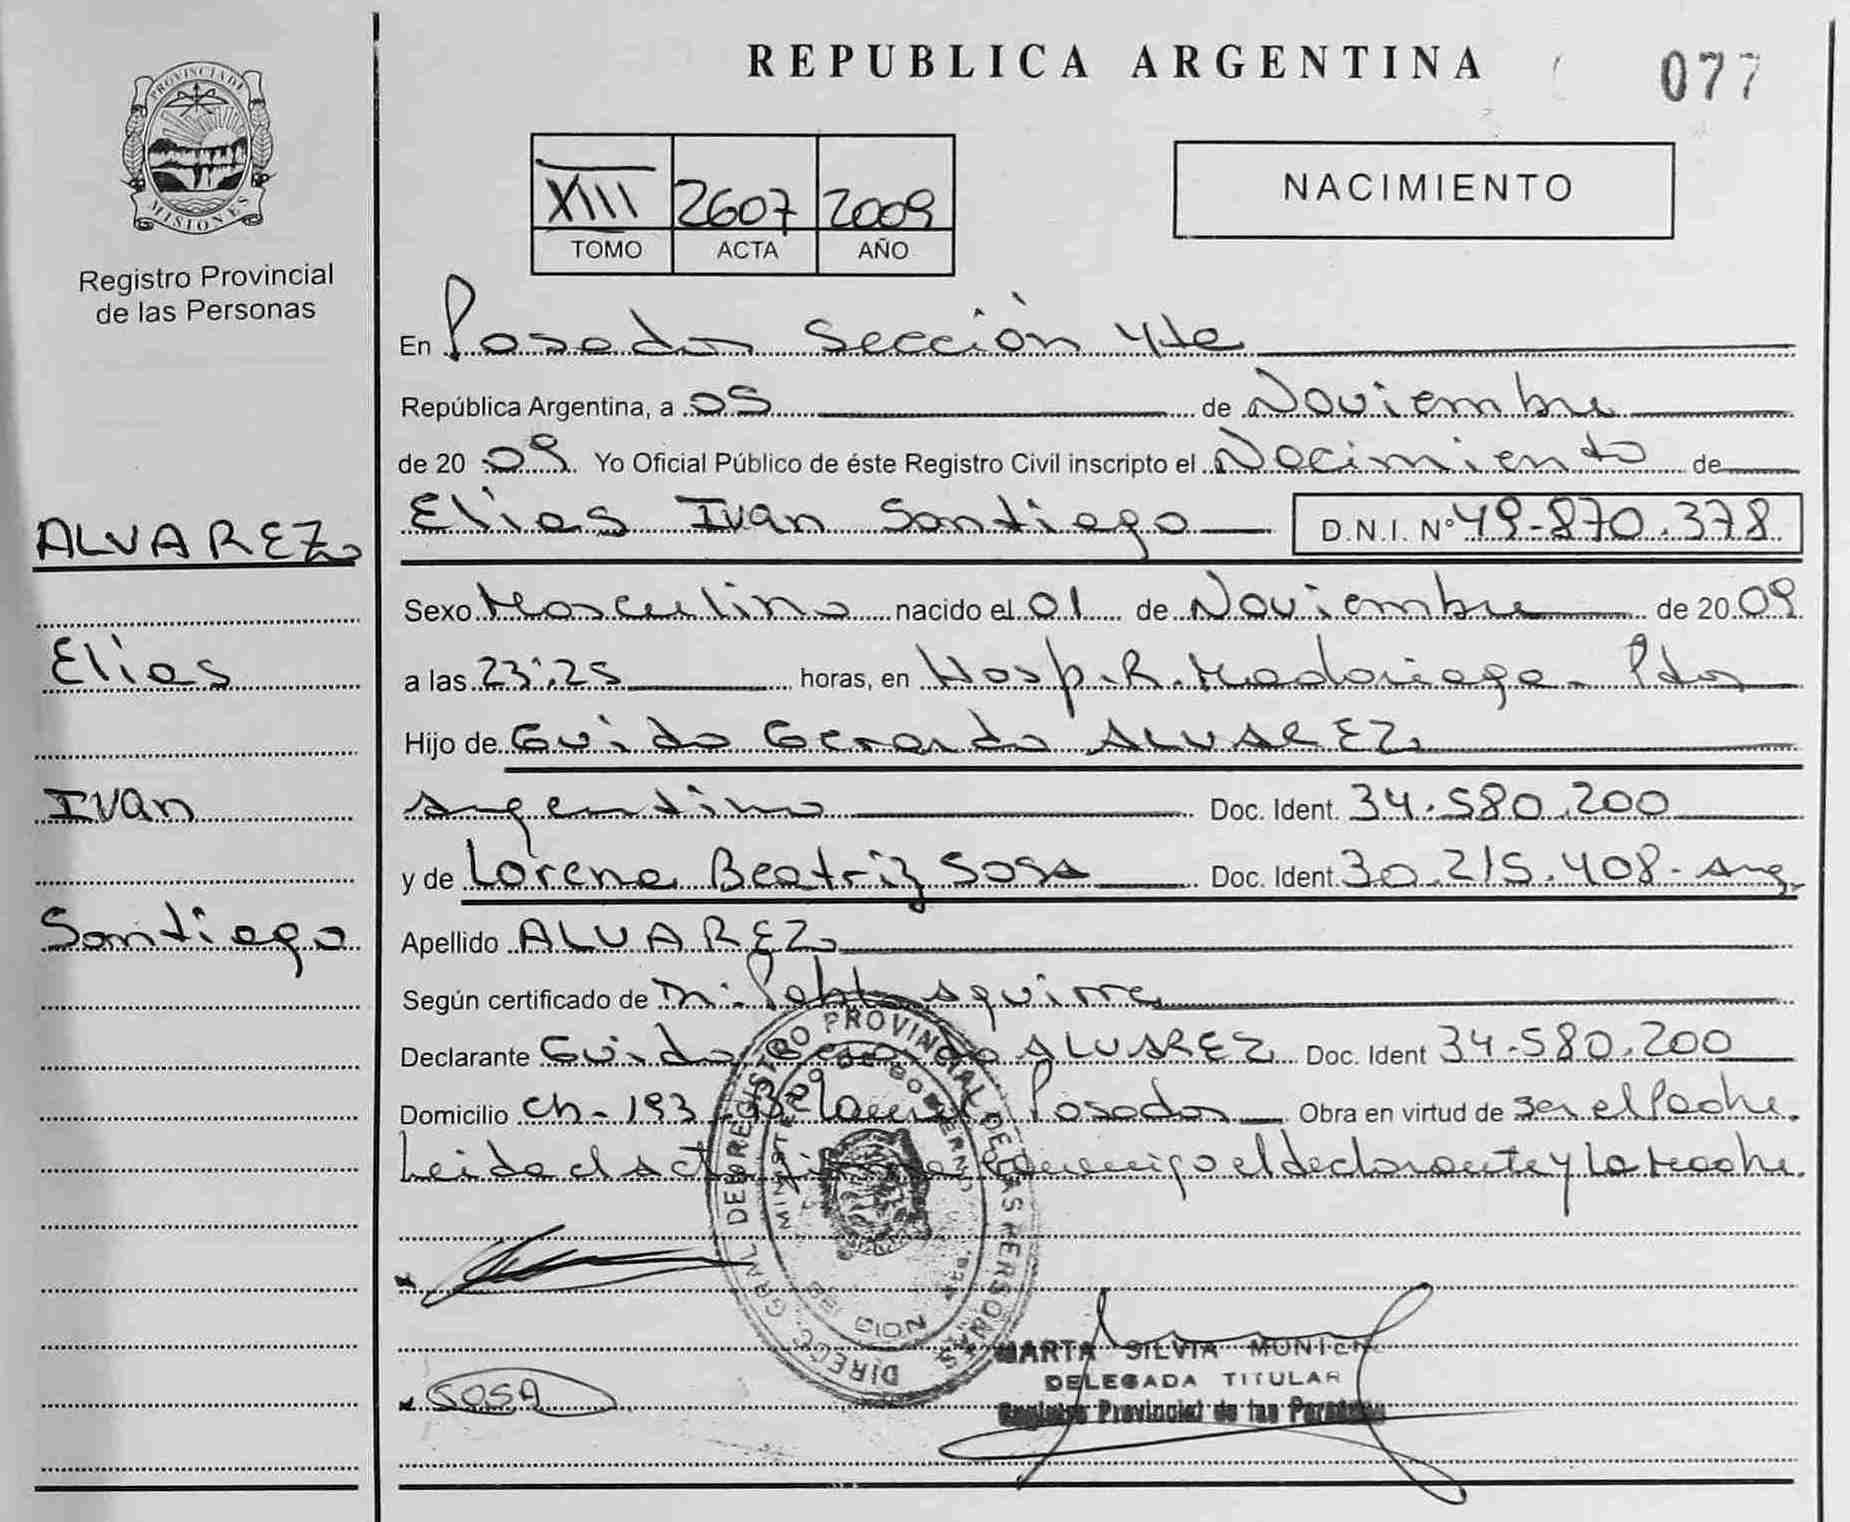 REPUBLICA ARGENTINA
077
PROVINCIA DE MISIONES
Registro Provincial
de las Personas
XIII 2607 2009
TOMO ACTA AÑO
NACIMIENTO
En Posadas Sección 4ta
República Argentina, a 05 de Noviembre
de 2009 Yo Oficial Público de éste Registro Civil inscripto el Nacimiento de
Elias Ivan Santiago D.N.I. Nº 49-870.378
ALVAREZ
Elias
Ivan
Santiago
Sexo Masculino nacido el 01 de Noviembre de 2009
a las 23:25 horas, en Hosp. R. Madariaga - Pdas
Hijo de Guido Gerardo ALVAREZ
Argentino Doc. Ident. 34.580.200
y de Lorena Beatriz SOSA Doc. Ident. 30.215.408 - Arg.
Apellido ALVAREZ
Según certificado de Pablo Aguirre
Declarante Guido Gerardo ALVAREZ Doc. Ident 34.580.200
Domicilio Ch - 193 Posadas Obra en virtud de ser el Padre.
Leida el acta firma conmigo el declarante y la Madre.
DIREC. GRAL. DEL REGISTRO PROVINCIAL DE LAS PERSONAS
MINISTERIO DE GOBIERNO
SOSA
MARTA SILVIA
DELEGADA TITULAR
Registro Provincial de las Personas